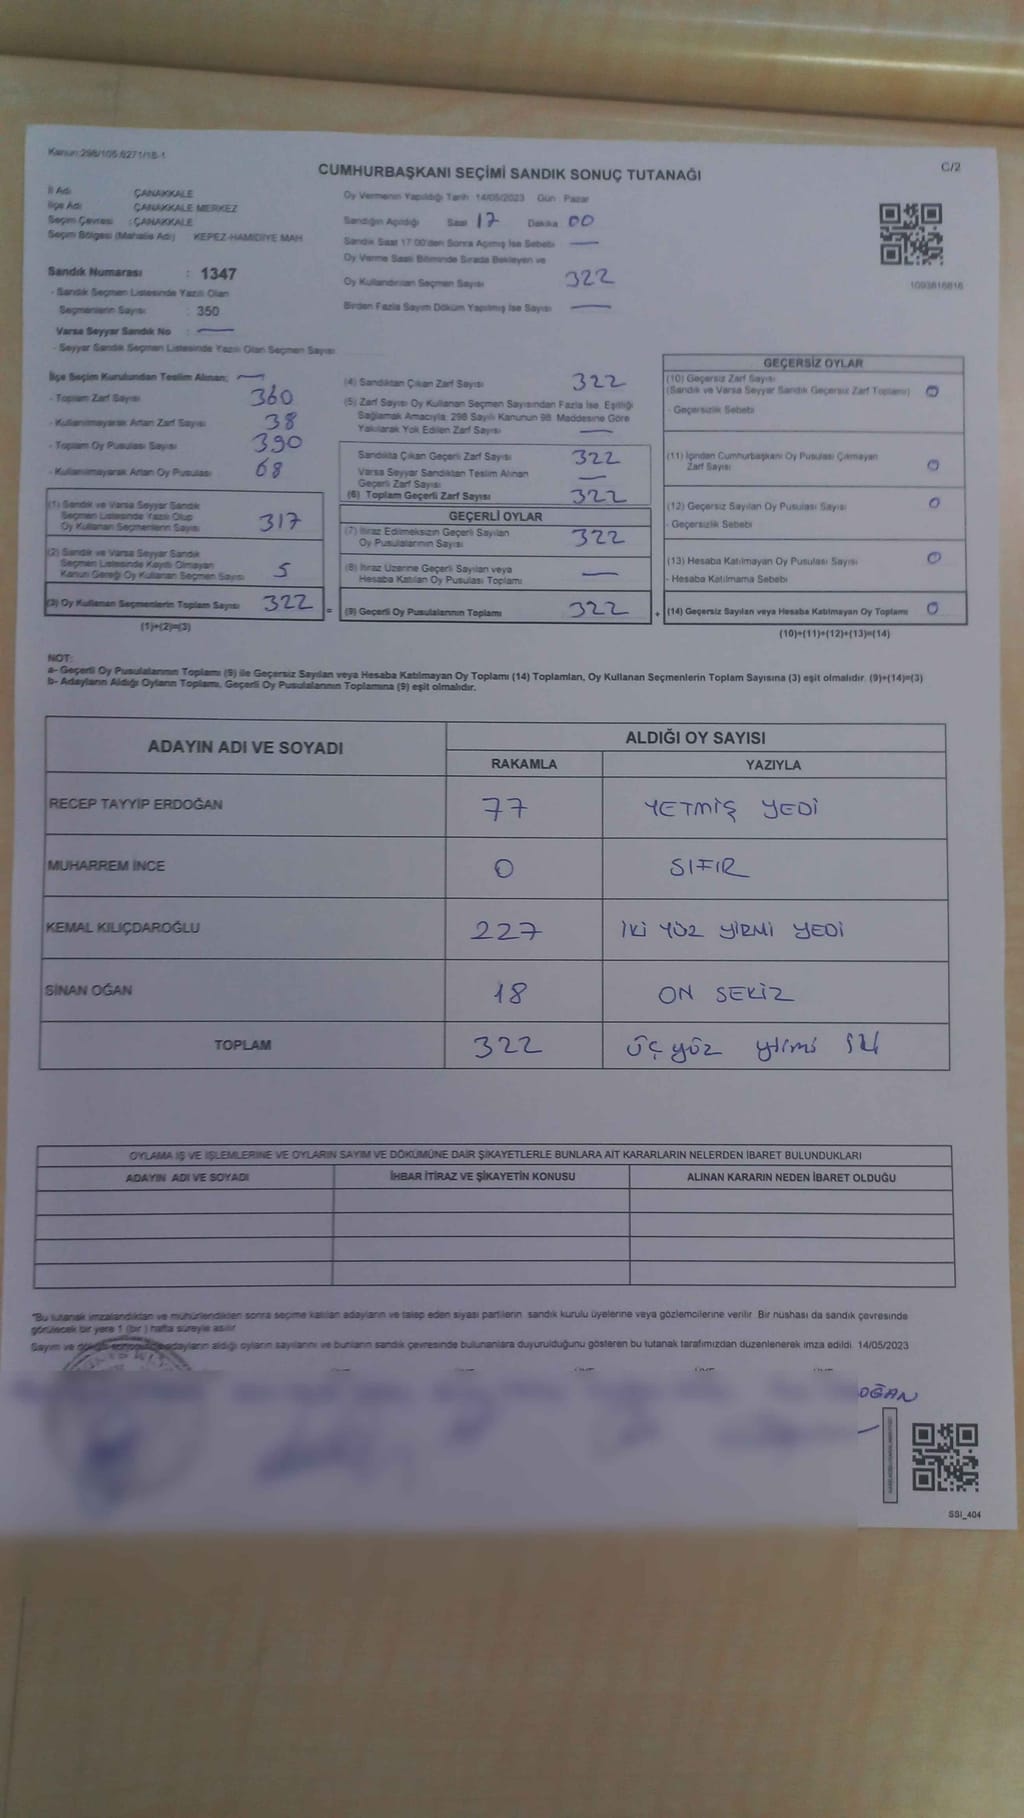 Kanun:298/105,6271/18-1
C/2
CUMHURBAŞKANI SEÇİMİ SANDIK SONUÇ TUTANAĞI
İl Adı ÇANAKKALE
İlçe Adı ÇANAKKALE MERKEZ
Seçim Çevresi : ÇANAKKALE
Seçim Bölgesi (Mahalle Adı) KEPEZ-HAMİDİYE MAH
Sandık Numarası : 1347
- Sandık Seçmen Listesinde Yazılı Olan
Seçmenlerin Sayısı : 350
Varsa Seyyar Sandık No : —
- Seyyar Sandık Seçmen Listesinde Yazılı Olan Seçmen Sayısı
Oy Vermenin Yapıldığı Tarih 14/05/2023 Gün Pazar
Sandığın Açıldığı Saat 17 Dakika 00
Sandık Saat 17:00'den Sonra Açılmış İse Sebebi —
Oy Verme Saati Bitiminde Sırada Bekleyen ve
Oy Kullandırılan Seçmen Sayısı 322
Birden Fazla Sayım Döküm Yapılmış İse Sayısı —
1093816816
İlçe Seçim Kurulundan Teslim Alınan; —
- Toplam Zarf Sayısı 360
- Kullanılmayarak Artan Zarf Sayısı 38
- Toplam Oy Pusulası Sayısı 390
- Kullanılmayarak Artan Oy Pusulası 68
(1) Sandık ve Varsa Seyyar Sandık
Seçmen Listesinde Yazılı Olup
Oy Kullanan Seçmenlerin Sayısı 317
(2) Sandık ve Varsa Seyyar Sandık
Seçmen Listesinde Kayıtlı Olmayan
Kanun Gereği Oy Kullanan Seçmen Sayısı 5
(3) Oy Kullanan Seçmenlerin Toplam Sayısı 322
(1)+(2)=(3)
=
(4) Sandıktan Çıkan Zarf Sayısı 322
(5) Zarf Sayısı Oy Kullanan Seçmen Sayısından Fazla İse, Eşitliği
Sağlamak Amacıyla, 298 Sayılı Kanunun 98. Maddesine Göre
Yakılarak Yok Edilen Zarf Sayısı —
Sandıkta Çıkan Geçerli Zarf Sayısı 322
Varsa Seyyar Sandıktan Teslim Alınan
Geçerli Zarf Sayısı —
(6) Toplam Geçerli Zarf Sayısı 322
GEÇERLİ OYLAR
(7) İtiraz Edilmeksizin Geçerli Sayılan
Oy Pusulalarının Sayısı 322
(8) İtiraz Üzerine Geçerli Sayılan veya
Hesaba Katılan Oy Pusulası Toplamı —
(9) Geçerli Oy Pusulalarının Toplamı 322
+
GEÇERSİZ OYLAR
(10) Geçersiz Zarf Sayısı
(Sandık ve Varsa Seyyar Sandık Geçersiz Zarf Toplamı) 0
- Geçersizlik Sebebi
(11) İçinden Cumhurbaşkanı Oy Pusulası Çıkmayan
Zarf Sayısı 0
(12) Geçersiz Sayılan Oy Pusulası Sayısı 0
- Geçersizlik Sebebi
(13) Hesaba Katılmayan Oy Pusulası Sayısı 0
- Hesaba Katılmama Sebebi
(14) Geçersiz Sayılan veya Hesaba Katılmayan Oy Toplamı 0
(10)+(11)+(12)+(13)=(14)
NOT:
a- Geçerli Oy Pusulalarının Toplamı (9) ile Geçersiz Sayılan veya Hesaba Katılmayan Oy Toplamı (14) Toplamları, Oy Kullanan Seçmenlerin Toplam Sayısına (3) eşit olmalıdır. (9)+(14)=(3)
b- Adayların Aldığı Oyların Toplamı, Geçerli Oy Pusulalarının Toplamına (9) eşit olmalıdır.
ADAYIN ADI VE SOYADI ALDIĞI OY SAYISI
RAKAMLA YAZIYLA
RECEP TAYYİP ERDOĞAN 77 YETMİŞ YEDİ
MUHARREM İNCE 0 SIFIR
KEMAL KILIÇDAROĞLU 227 İKİ YÜZ YİRMİ YEDİ
SİNAN OĞAN 18 ON SEKİZ
TOPLAM 322 üç yüz yirmi iki
OYLAMA İŞ VE İŞLEMLERİNE VE OYLARIN SAYIM VE DÖKÜMÜNE DAİR ŞİKAYETLERLE BUNLARA AİT KARARLARIN NELERDEN İBARET BULUNDUKLARI
ADAYIN ADI VE SOYADI İHBAR İTİRAZ VE ŞİKAYETİN KONUSU ALINAN KARARIN NEDEN İBARET OLDUĞU
*Bu tutanak imzalandıktan ve mühürlendikten sonra seçime katılan adayların ve talep eden siyasi partilerin sandık kurulu üyelerine veya gözlemcilerine verilir. Bir nüshası da sandık çevresinde
görülecek bir yere 1 (bir) hafta süreyle asılır.
Sayım ve döküm sonucunda adayların aldığı oyların sayılarını ve bunların sandık çevresinde bulunanlara duyurulduğunu gösteren bu tutanak tarafımızdan düzenlenerek imza edildi. 14/05/2023
OĞAN
SSI_404